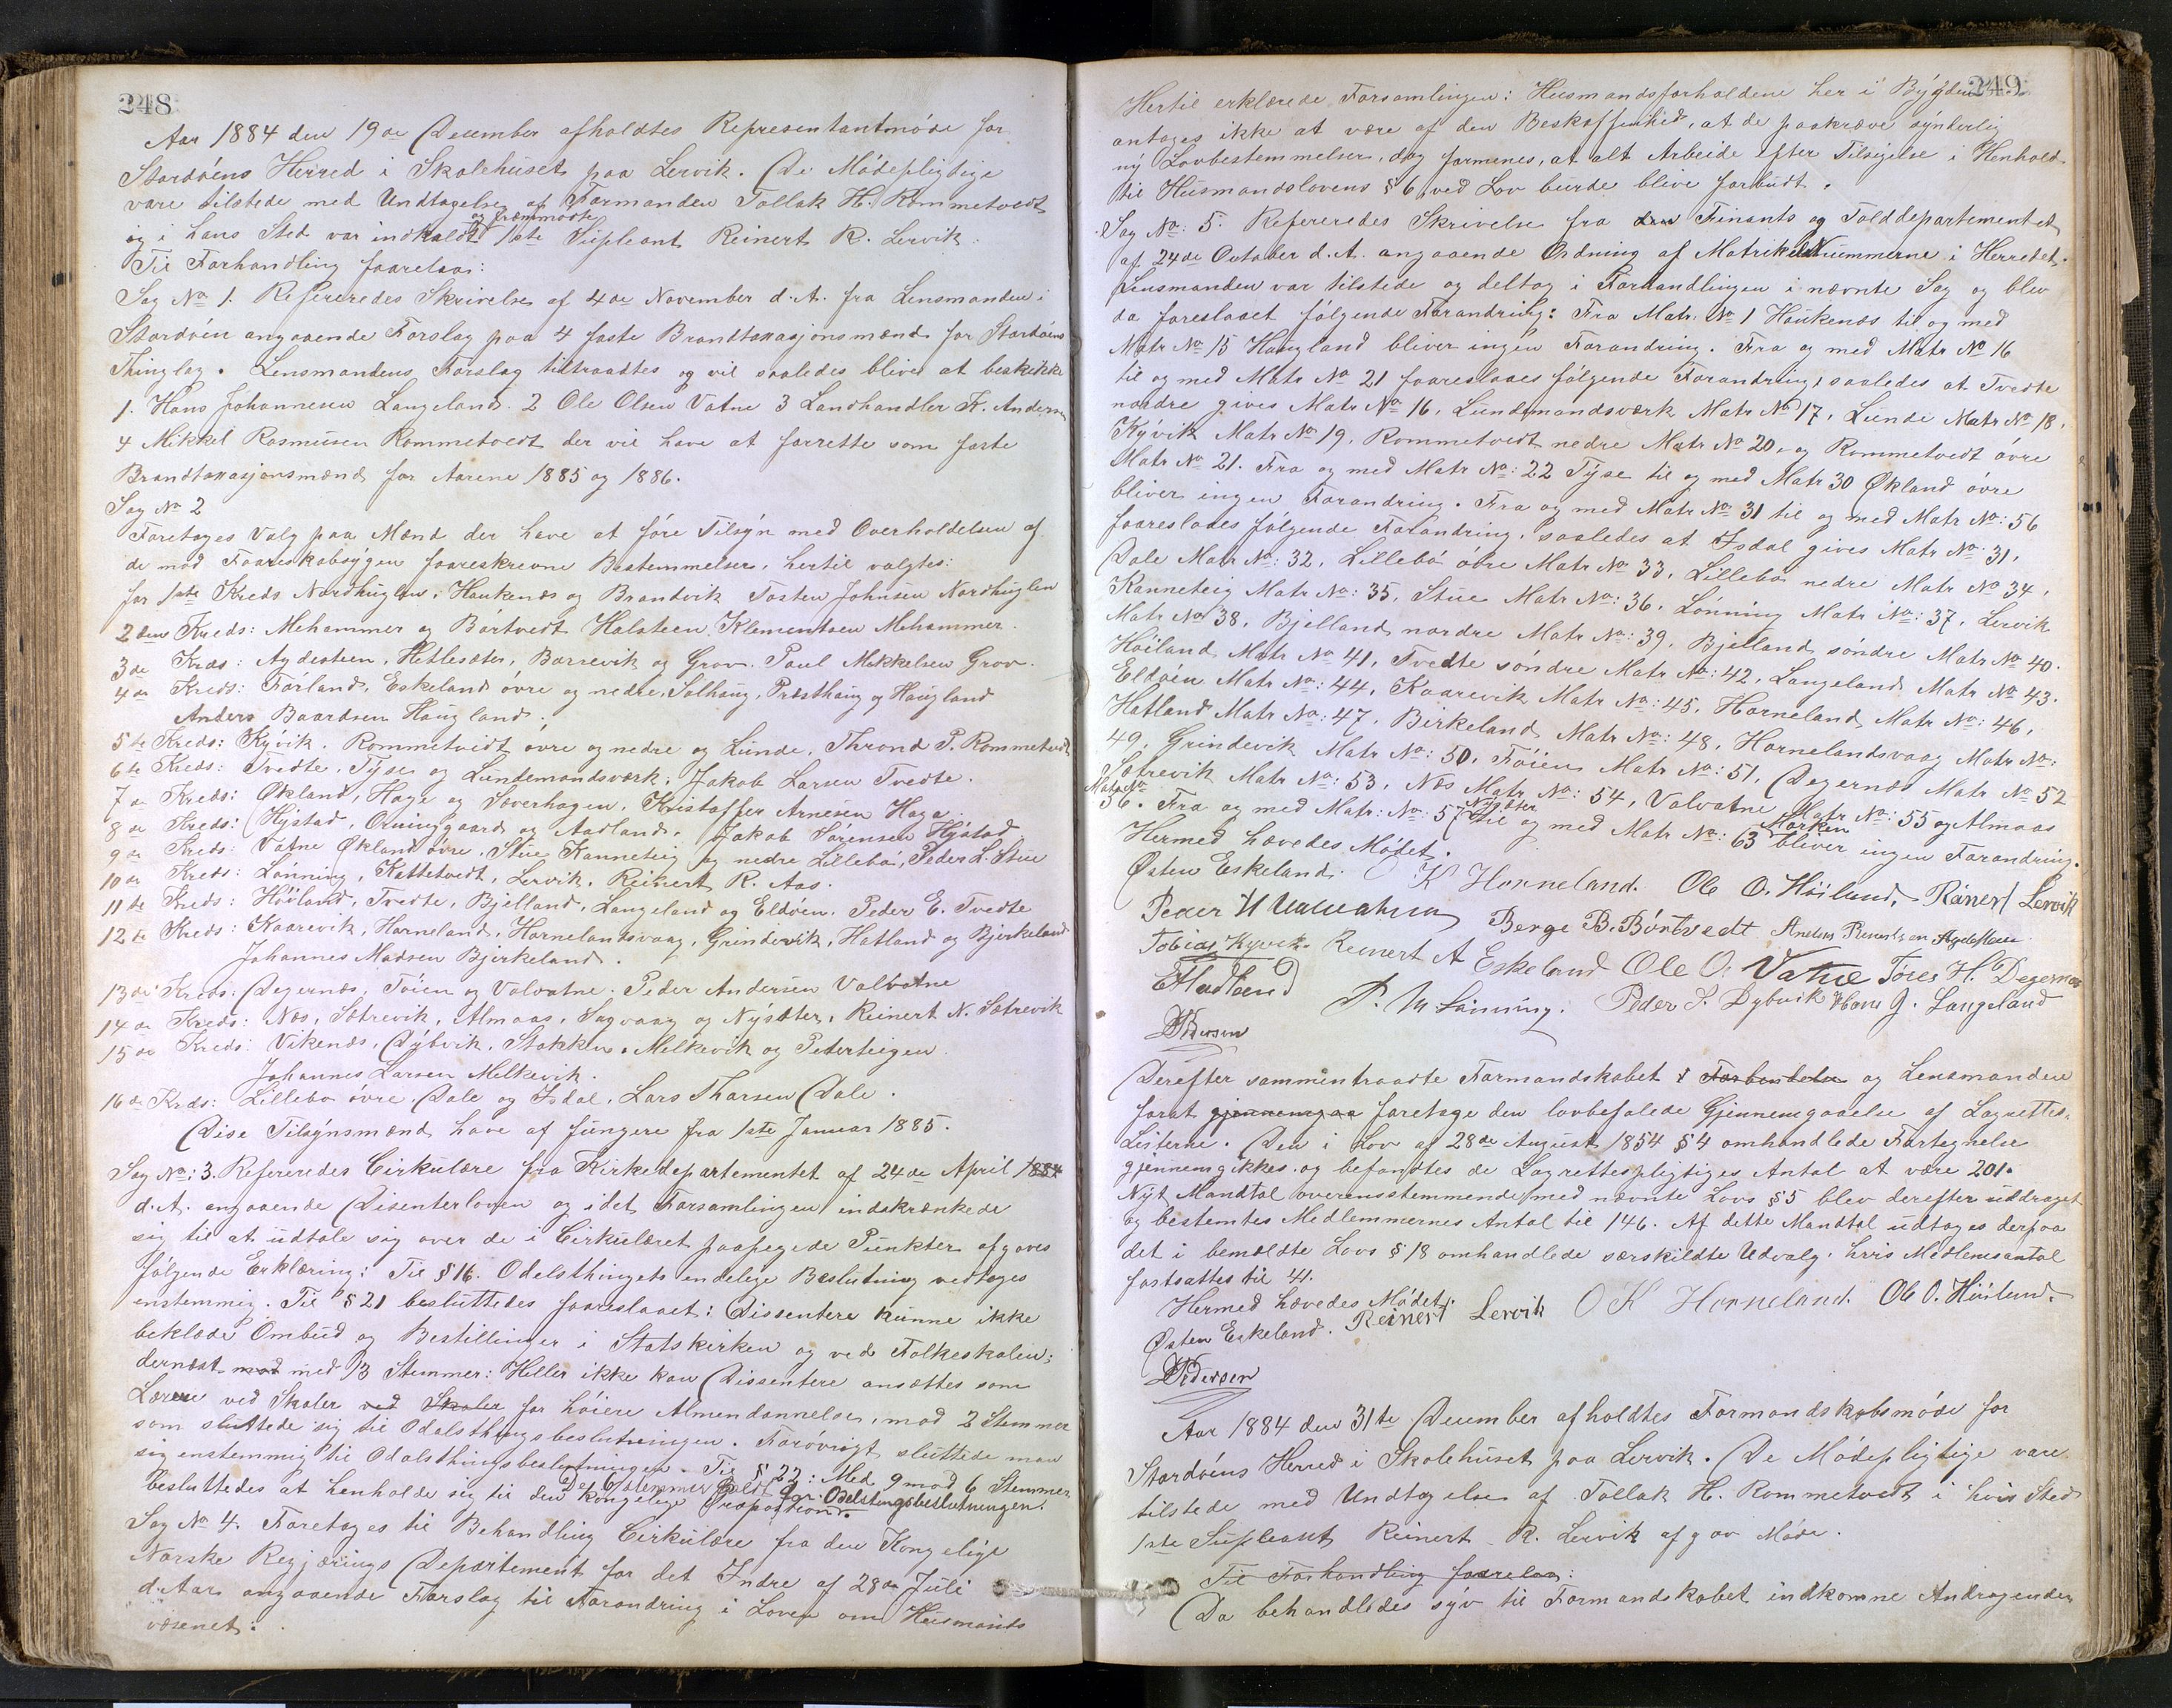 248
Aar 1884 den 19de December afholdtes Representantmøde for
Stordøens Herred i Skolehuset paa Lervik. De Mødepligtige
vare tilstede med Undtagelse af Formanden Tollak H. Rommetvedt
og fremmødte
og i hans Sted var indkaldt 1ste Supleant Reinert R. Lervik.
Til Forhandling foorelaa:
Sag No 1. Refereredes Skrivelse af 4de November d.A. fra Lensmanden i
Stordøen angaaende Forslag paa 4 faste Brandtaxasjonsmænd for Stordøens
Thinglag. Lensmandens Forslag tiltraadtes og vil saaledes blive at beskikke
1. Hans Johannesen Langeland. 2 Ole Olsen Vatne 3 Landhandler K. Andersen
4 Mikkel Rasmusen Rommetvedt der vil have at forrette som faste
Brandtaxasjonsmænd for Aarene 1885 og 1886.
Sag No 2
Foretoges Valg paa Mænd der have at føre Tilsyn med Overholdelsen af
de mod Faareskabsygen fooreskrevne Bestemmelser, hertil valgtes:
for 1ste Kreds Nordhuglen, Haukenæs og Brandvik Tosten Johnsen Nordhuglen
2den Kreds: Mehammer og Børtvedt Halsteen Klementsen Mehammer.
3de Kreds: Agdesteen, Hetlesæter, Barsevik og Grov. Paul Mikkelsen Grov.
4de Kreds: Førland, Eskeland øvre og nedre, Solhaug, Præsthaug og Haugland
Anders Baardsen Haugland.
5te Kreds: Kyvik, Rommetvedt øvre og nedre og Lunde, Thrond P. Rommetvedt
6te Kreds: Tvedte, Tyse og Lundemandsværk, Jakob Larsen Tvedte.
7de Kreds: Økland, Hage og Sæverhagen, Kristoffer Arnesen Hage
8de Kreds: Hystad, Orninggaard og Aadland, Jakob Sørensen Hystad
9de Kreds: Vatne Økland øvre, Stue Kanneteig og nedre Lillebø, Peder L. Stue
10de Kreds: Lønning, Kattetvedt, Lervik, Reinert R. Aas.
11te Kreds: Høiland, Tvedte, Bjelland, Langeland og Eldøen. Peder E. Tvedte
12te Kreds: Kaarevik, Horneland, Hornelandsvaag, Grindevik, Hatland og Bjerkeland
Johannes Madsen Bjerkeland.
13de Kreds: Degernæs, Føien og Valvatne. Peder Andersen Valvatne
14de Kreds: Næs, Sætrevik, Almaas, Sagvaag og Nysæter, Reinert N. Sætrevik
15de Kreds: Vikenæs, Dybvik, Stokken, Melkevik og Peterteigen
Johannes Larsen Melkevik.
16de Kreds: Lillebø øvre, Dale og Isdal, Lars Tharsen Dale.
Disse Tilsynsmænd have af fungere fra 1ste Januar 1885.
Sag No: 3. Refereredes Cirkulære fra Kirkedepartementet af 24de April 1884
d.A. angaaende Disenterloven og idet Forsamlingen indskrænkede
sig til at udtale sig over de i Cirkulæret paapegede Punkter afgaves
følgende Erklæring: Til § 16. Odelsthingets endelige Beslutning vedtoges
enstemmig. Til § 21 besluttedes fooreslaaet: Dissentere kunne ikke
beklæde Ombud og Bestillinger i Statskirken og ved Folkeskolen;
dernæst mod med 13 Stemmer: Heller ikke kan Dissentere ansættes som
Lærere ved Skoler ved Skoler for høiere Almendannelse, mod 2 Stemmer
som sluttede sig til Odelsthingsbeslutningen. Forøvrigt sluttede man
sig enstemmig til Odelsthingsbeslutningen. Til § 22: Med 9 mod 6 Stemmer
De 6 stemmer holdt for Odelstingsbeslutningen.
besluttedes at henholde sig til den kongelige Proposition.
Sag No 4. Foretoges til Behandling Cirkulære fra den Kongelige
Norske Regjærings Departement for det Indre af 28de Juli
d. Aar angaaende Forslag til Forandring i Loven om Husmands
væsenet:
249
Hertil erklærede Forsamlingen: Husmandsforholdene her i Bygden
antages ikke at være af den Beskaffenhed, at de paakræve synderlig
ny Lovbestemmelser, dog formenes, at alt Arbeide efter Tilsigelse i Henhold
til Husmandslovens § 6 ved Lov burde blive forbudt.
Sag No: 5. Refereredes Skrivelse fra den Finants og Tolddepartementet
af 24de October d.A. angaaende Ordning af Matrikelnummerne i Herredet.
Lensmanden var tilstede og deltog i Forhandlingen i nævnte Sag og blev
da foreslaaet følgende Forandring: Fra Matr. No 1 Haukenæs til og med
Matr No 15 Haugland bliver ingen Forandring. Fra og med Matr No 16
til og med Matr No 21 fooreslaaes følgende Forandring, saaledes at Tvedte
nordre gives Matr No 16, Lundsmandsværk Matr No 17, Lunde Matr No 18,
Kyvik Matr No 19, Rommetvedt nedre Matr No 20, og Rommetvedt øvre
Matr No 21. Fra og med Matr No: 22 Tyse til og med Matr 30 Økland øvre
bliver ingen Forandring. Fra og med Matr No 31 til og med Matr No: 56
fooreslaaes følgende Forandring, saaledes at Isdal gives Matr No: 31,
Dale Matr No: 32, Lillebø øvre Matr No 33, Lillebø nedre Matr No 34,
Kanneteig Matr No: 35, Stue Matr No: 36, Lønning Matr No: 37, Lervik
Matr No 38, Bjelland nordre Matr No: 39, Bjelland søndre Matr No 40.
Høiland Matr No 41, Tvedte søndre Matr No: 42, Langeland Matr No 43.
Eldøen Matr No: 44, Kaarevik Matr No: 45, Horneland Matr No: 46,
Hatland Matr No: 47, Birkeland Matr No: 48, Hornelandsvaag Matr No:
49, Grindevik Matr No: 50, Føien Matr No: 51, Degernæs Matr No 52
Sætrevik Matr No: 53, Næs Matr No: 54, Valvatne Matr No: 55 og Almaas
Matr No
56. Fra og med Matr: No: 57 Nysæter til og med Matr No: 63 Marken bliver ingen Forandring.
Hermed hævedes Mødet.
Østen Eskeland. O K Horneland. Ole O. Høiland, Rainert Lervik
Berge B. Børtvedt Anders Reinertsen Agdesteen
Tobias Kyvik. Reinert A Eskeland Ole O. Vatne Tores H. Degernæs
P. M Lønning. Peder S. Dybvik Hans J. Langeland
Pedersen
Derefter sammentraadte Formandskabet og Lensmanden
forat gjennemgaa foretage den lovbefalede Gjennemgaaelse af Lagrettes-
Listerne. Den i Lov af 28de August 1854 § 4 omhandlede Fortegnelse
gjennemgikkes og befandtes de Lagrettespligtiges Antal at være 201.
Nyt Mandtal overensstemmende med nævnte Lovs § 5 blev derefter uddraget
og bestemtes Medlemmernes Antal til 146. Af dette Mandtal udtoges derpaa
det i bemældte Lovs § 18 omhandlede særskildte Udvalg, hvis Medlemsantal
fastsattes til 41.
Hermed hævedes Mødet.
Østen Eskeland. Reinert Lervik O K Horneland. Ole O. Høiland.
Pedersen
Aar 1884 den 31te December afholdtes Formandskabsmøde for
Stordøens Herred i Skolehuset paa Lervik. De Mødepligtige vare
tilstede med Undtagelse af Tollak H. Rommetvedt i hvis Sted
1ste Supleant Reinert R. Lervik afgav Møde.
Til Forhandling foorelaa:
Da behandledes syv til Formandskabet indkomne Andragender